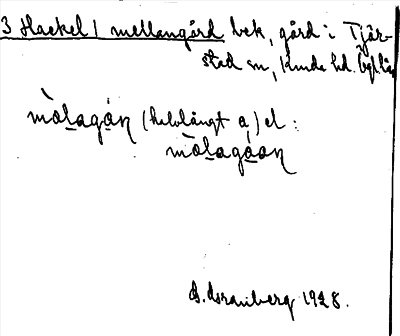 3 Hackel / mellangård bek, gård i Tjär-
stad sn, Kinda hd. Ögl. län
mòlagån (halvlångt a) el:
mòlagåan
1928.